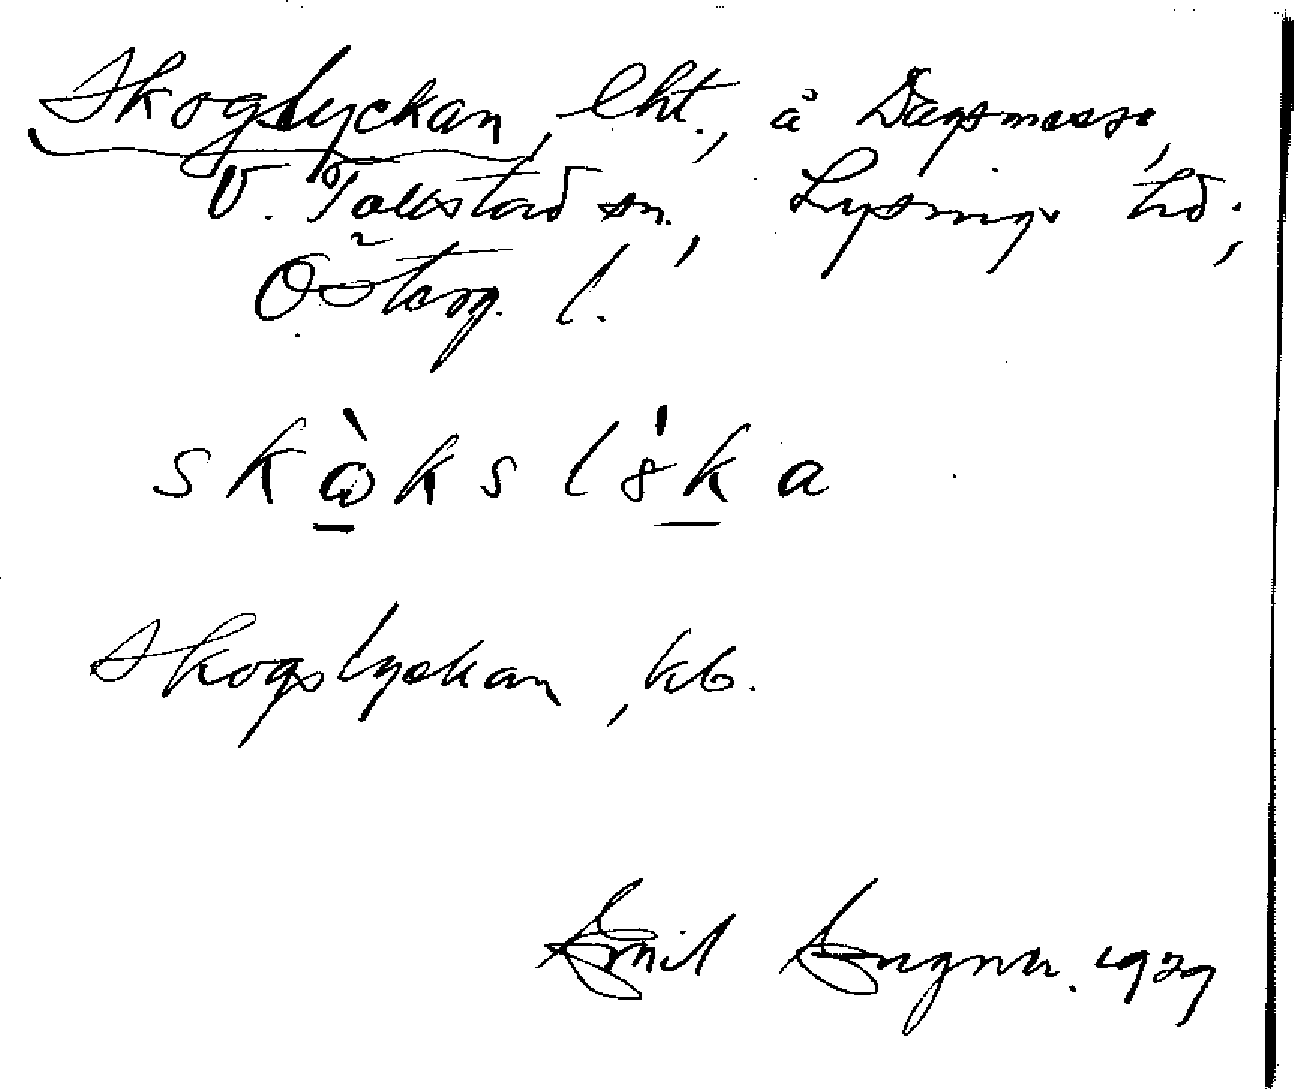 Skogslyckan, lht., å Dagsmosse,
V. Tollstad sn., Lysings hd.,
Österg. l.
skὼksl8̍ka
Skogslyckan, kb.
Emil 1929